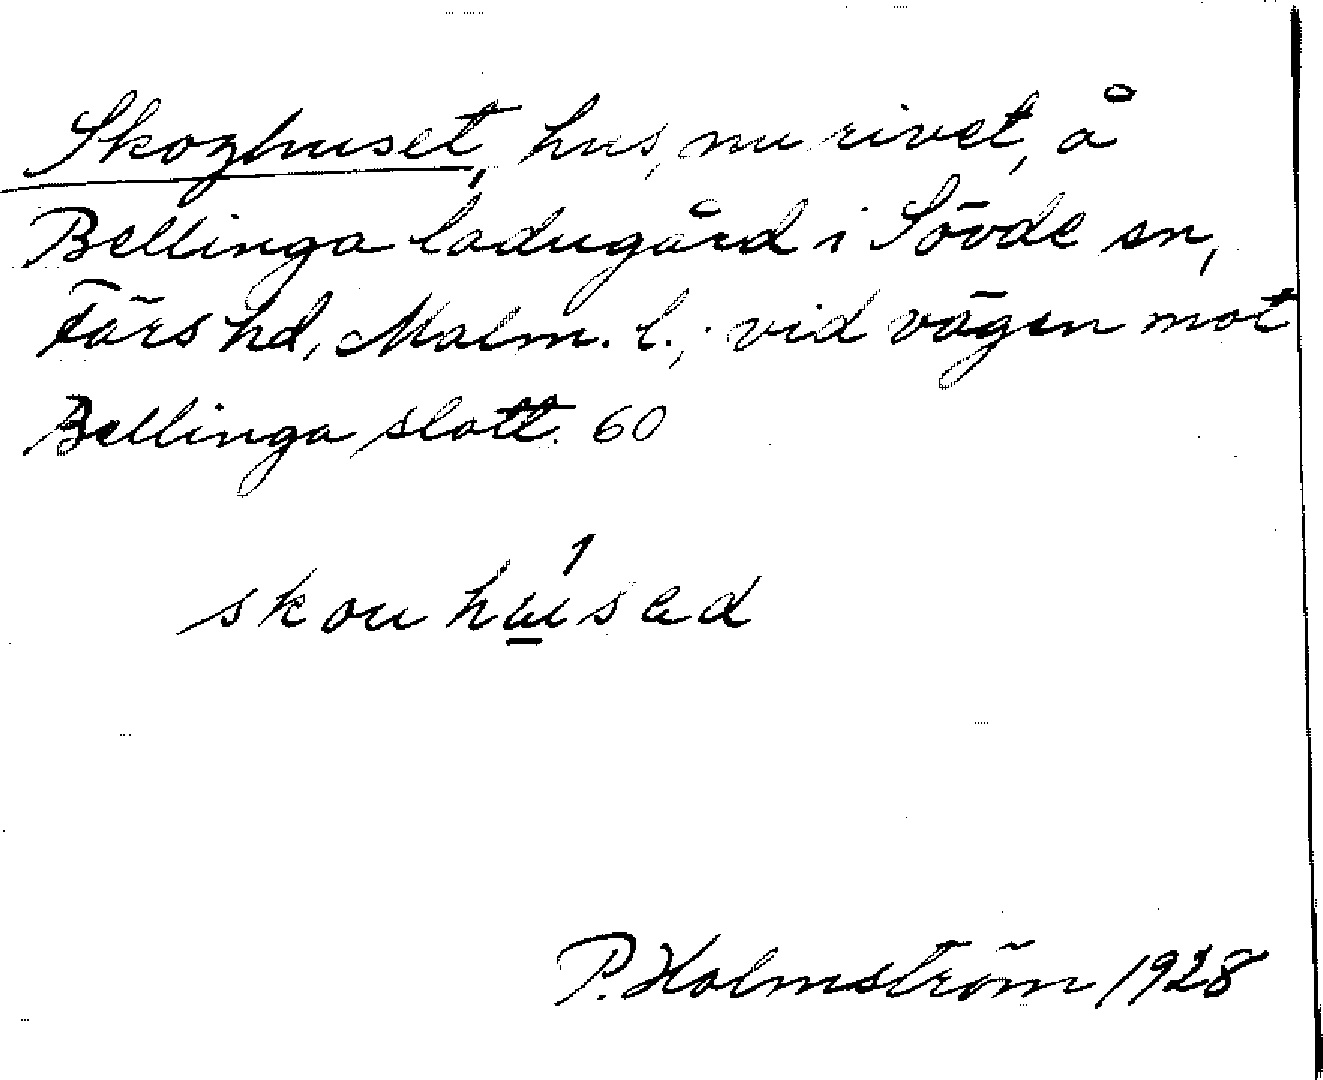 Skoghuset, hus, nu rivet, å
Bellinga ladugård i Sövde sn,
Färs hd, Malm. l.; vid vägen mot
Bellinga slott. 60
skouhu̲sed
P. Holmström 1928